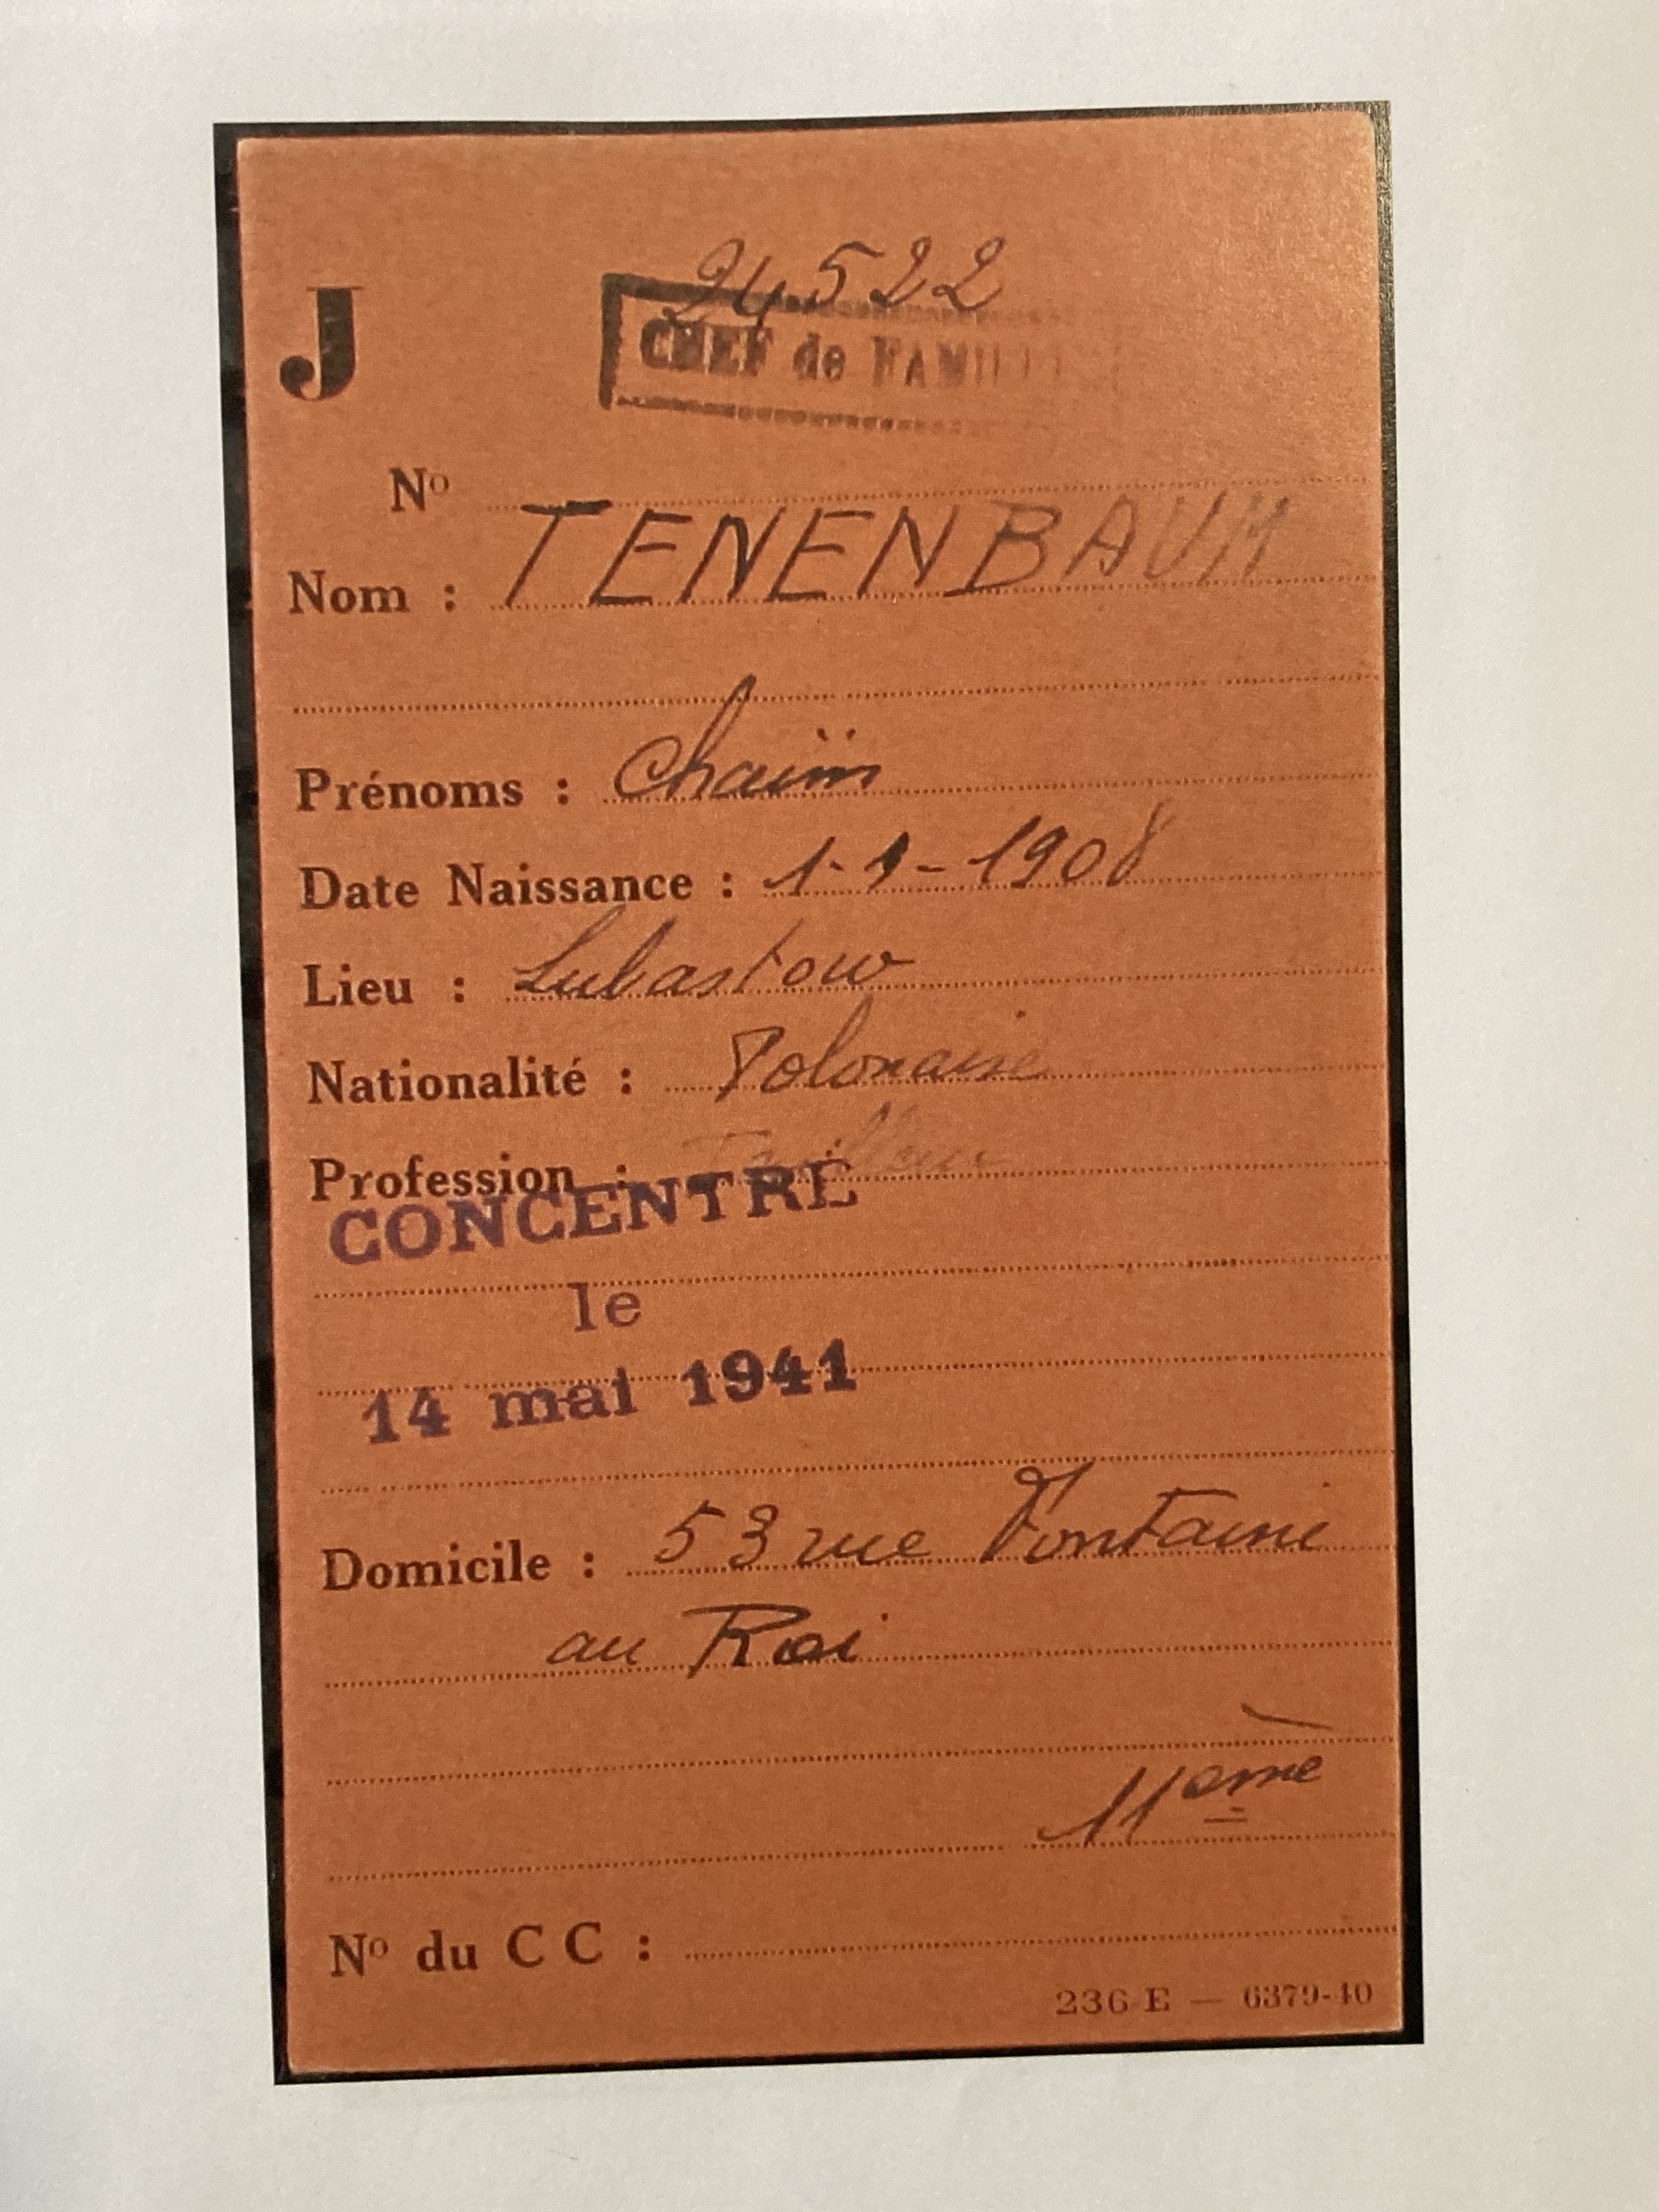 24522
J
CHEF de FAMILLE
No
Nom : TENENBAUM
Prénoms : Chaïm
Date Naissance : 1-1-1908
Lieu : Lubastow
Nationalité : Polonaise
Profession : Tailleur
CONCENTRÉ
le
14 mai 1941
Domicile : 53 rue Fontaine
au Roi
11ème
No du C C :
236 E — 6379-40